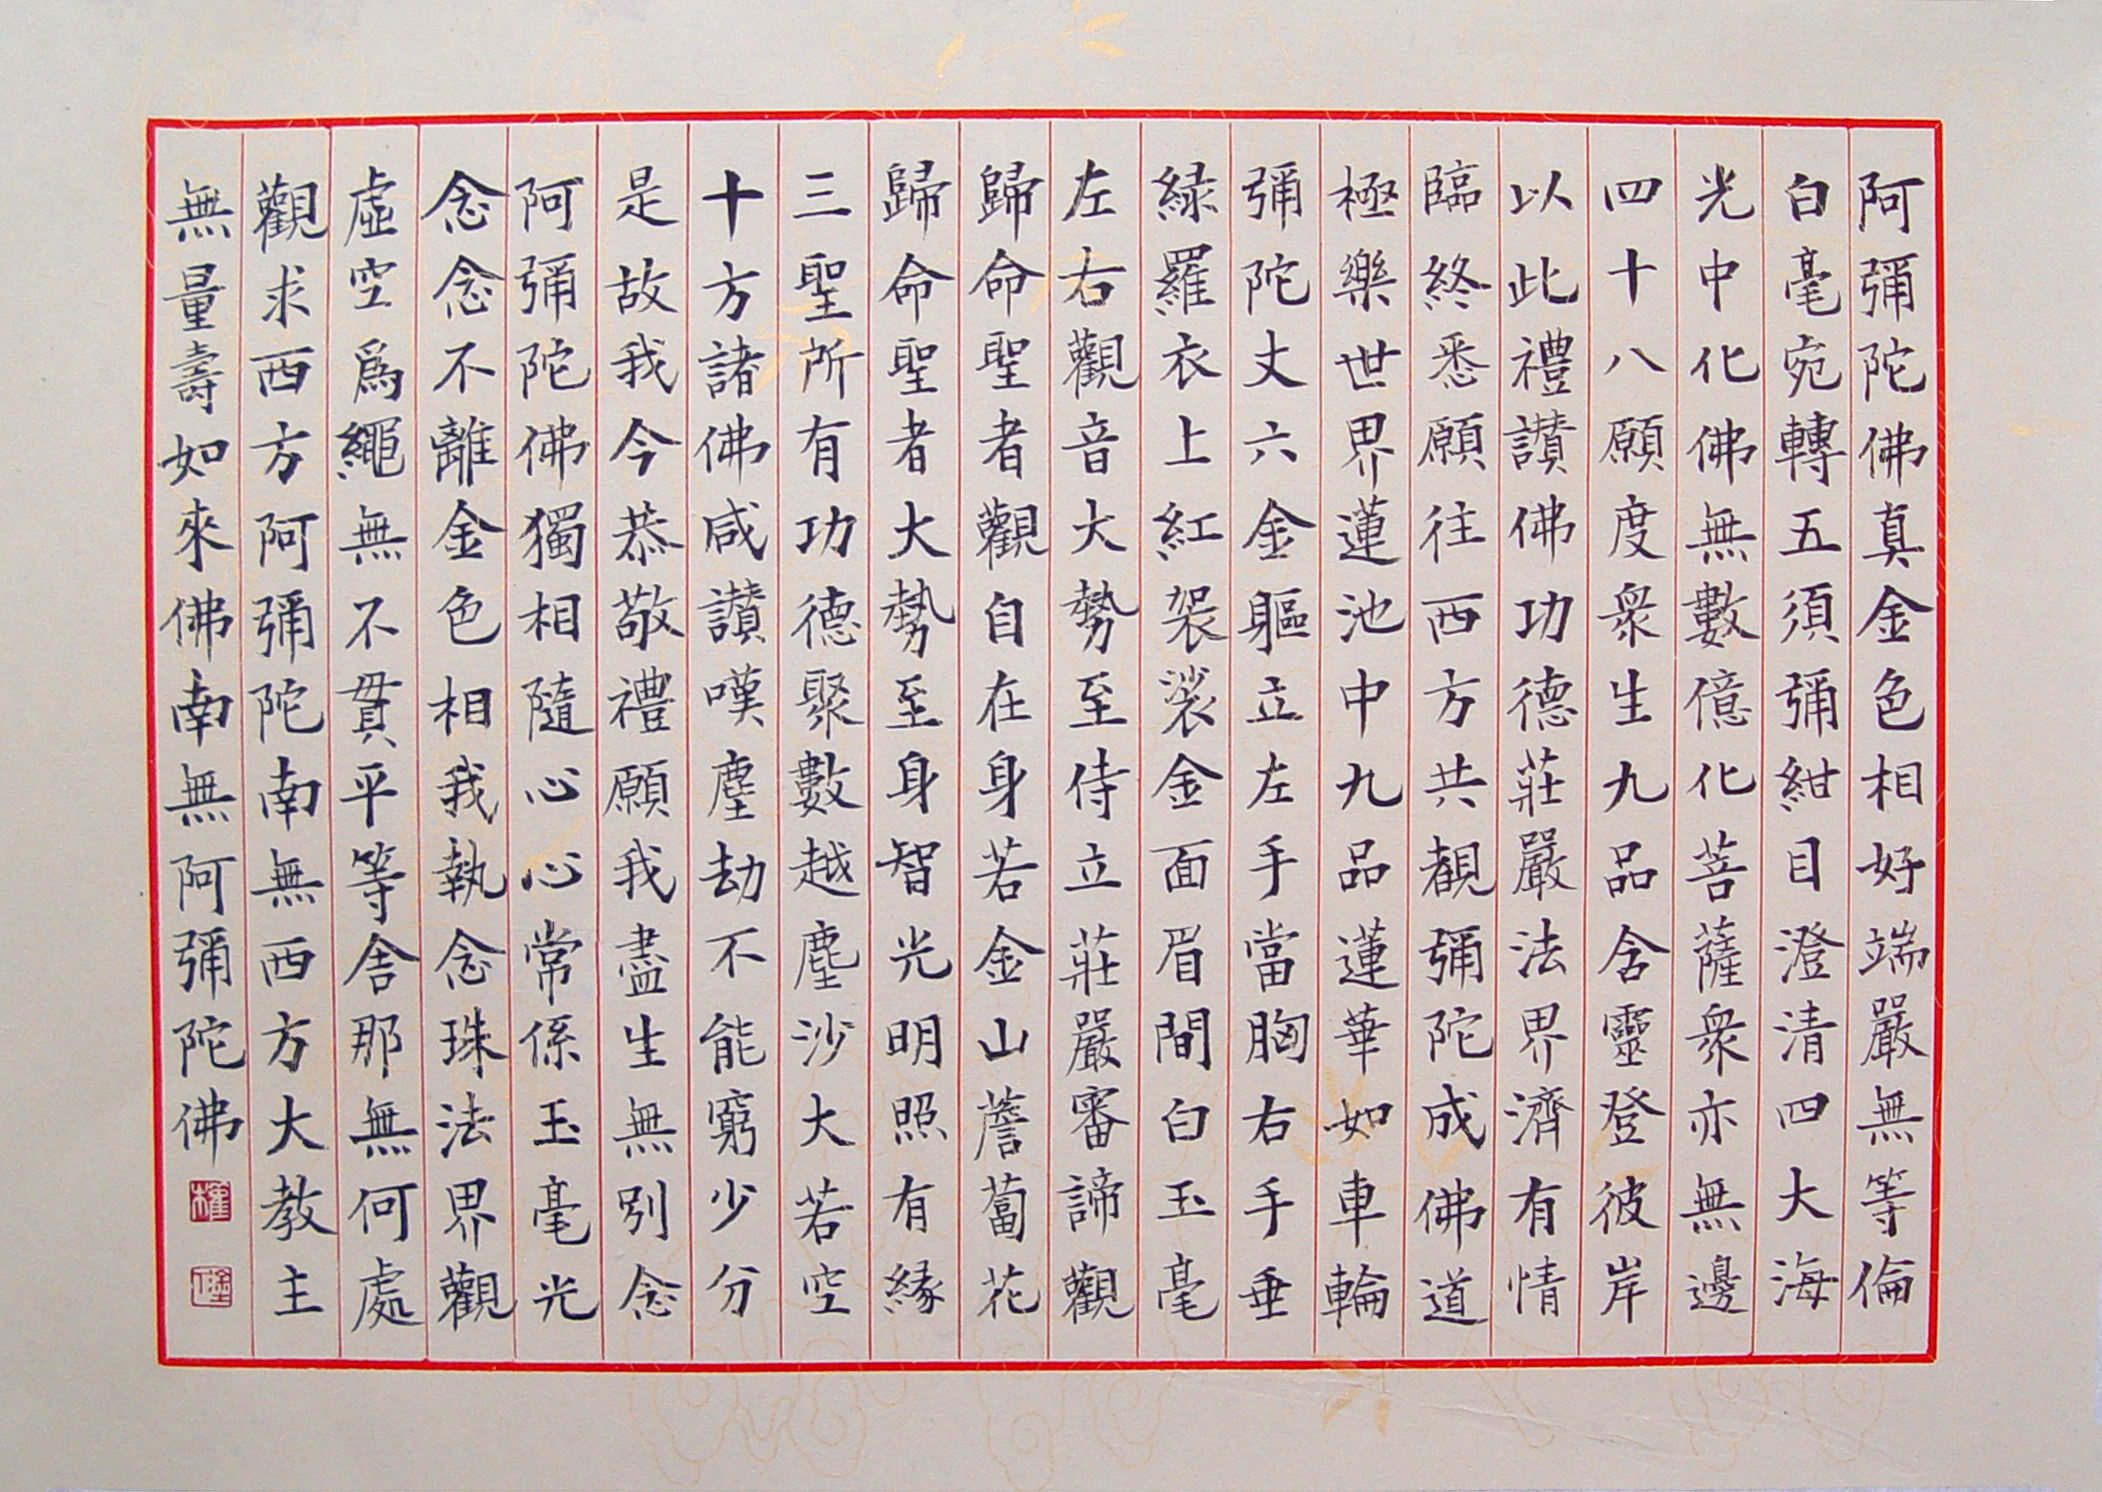 阿彌陀佛真金色相好端嚴無等倫
白毫宛轉五須彌紺目澄清四大海
光中化佛無數億化菩薩衆亦無邊
四十八願度衆生九品含靈登彼岸
以此禮讃佛功德莊嚴法界濟有情
臨終悉願往西方共覩彌陀成佛道
極樂世界蓮池中九品蓮華如車輪
彌陀丈六金軀立左手當胸右手垂
緑羅衣上紅袈裟金面眉間白玉毫
左右觀音大勢至侍立莊嚴審諦觀
歸命聖者觀自在身若金山薝蔔花
歸命聖者大勢至身智光明照有緣
三聖所有功德聚數越塵沙大若空
十方諸佛咸讃嘆塵劫不能窮少分
是故我今恭敬禮願我盡生無別念
阿彌陀佛獨相隨心心常係玉毫光
念念不離金色相我執念珠法界觀
虛空爲繩無不貫平等舍那無何處
觀求西方阿彌陀南無西方大教主
無量壽如來佛南無阿彌陀佛